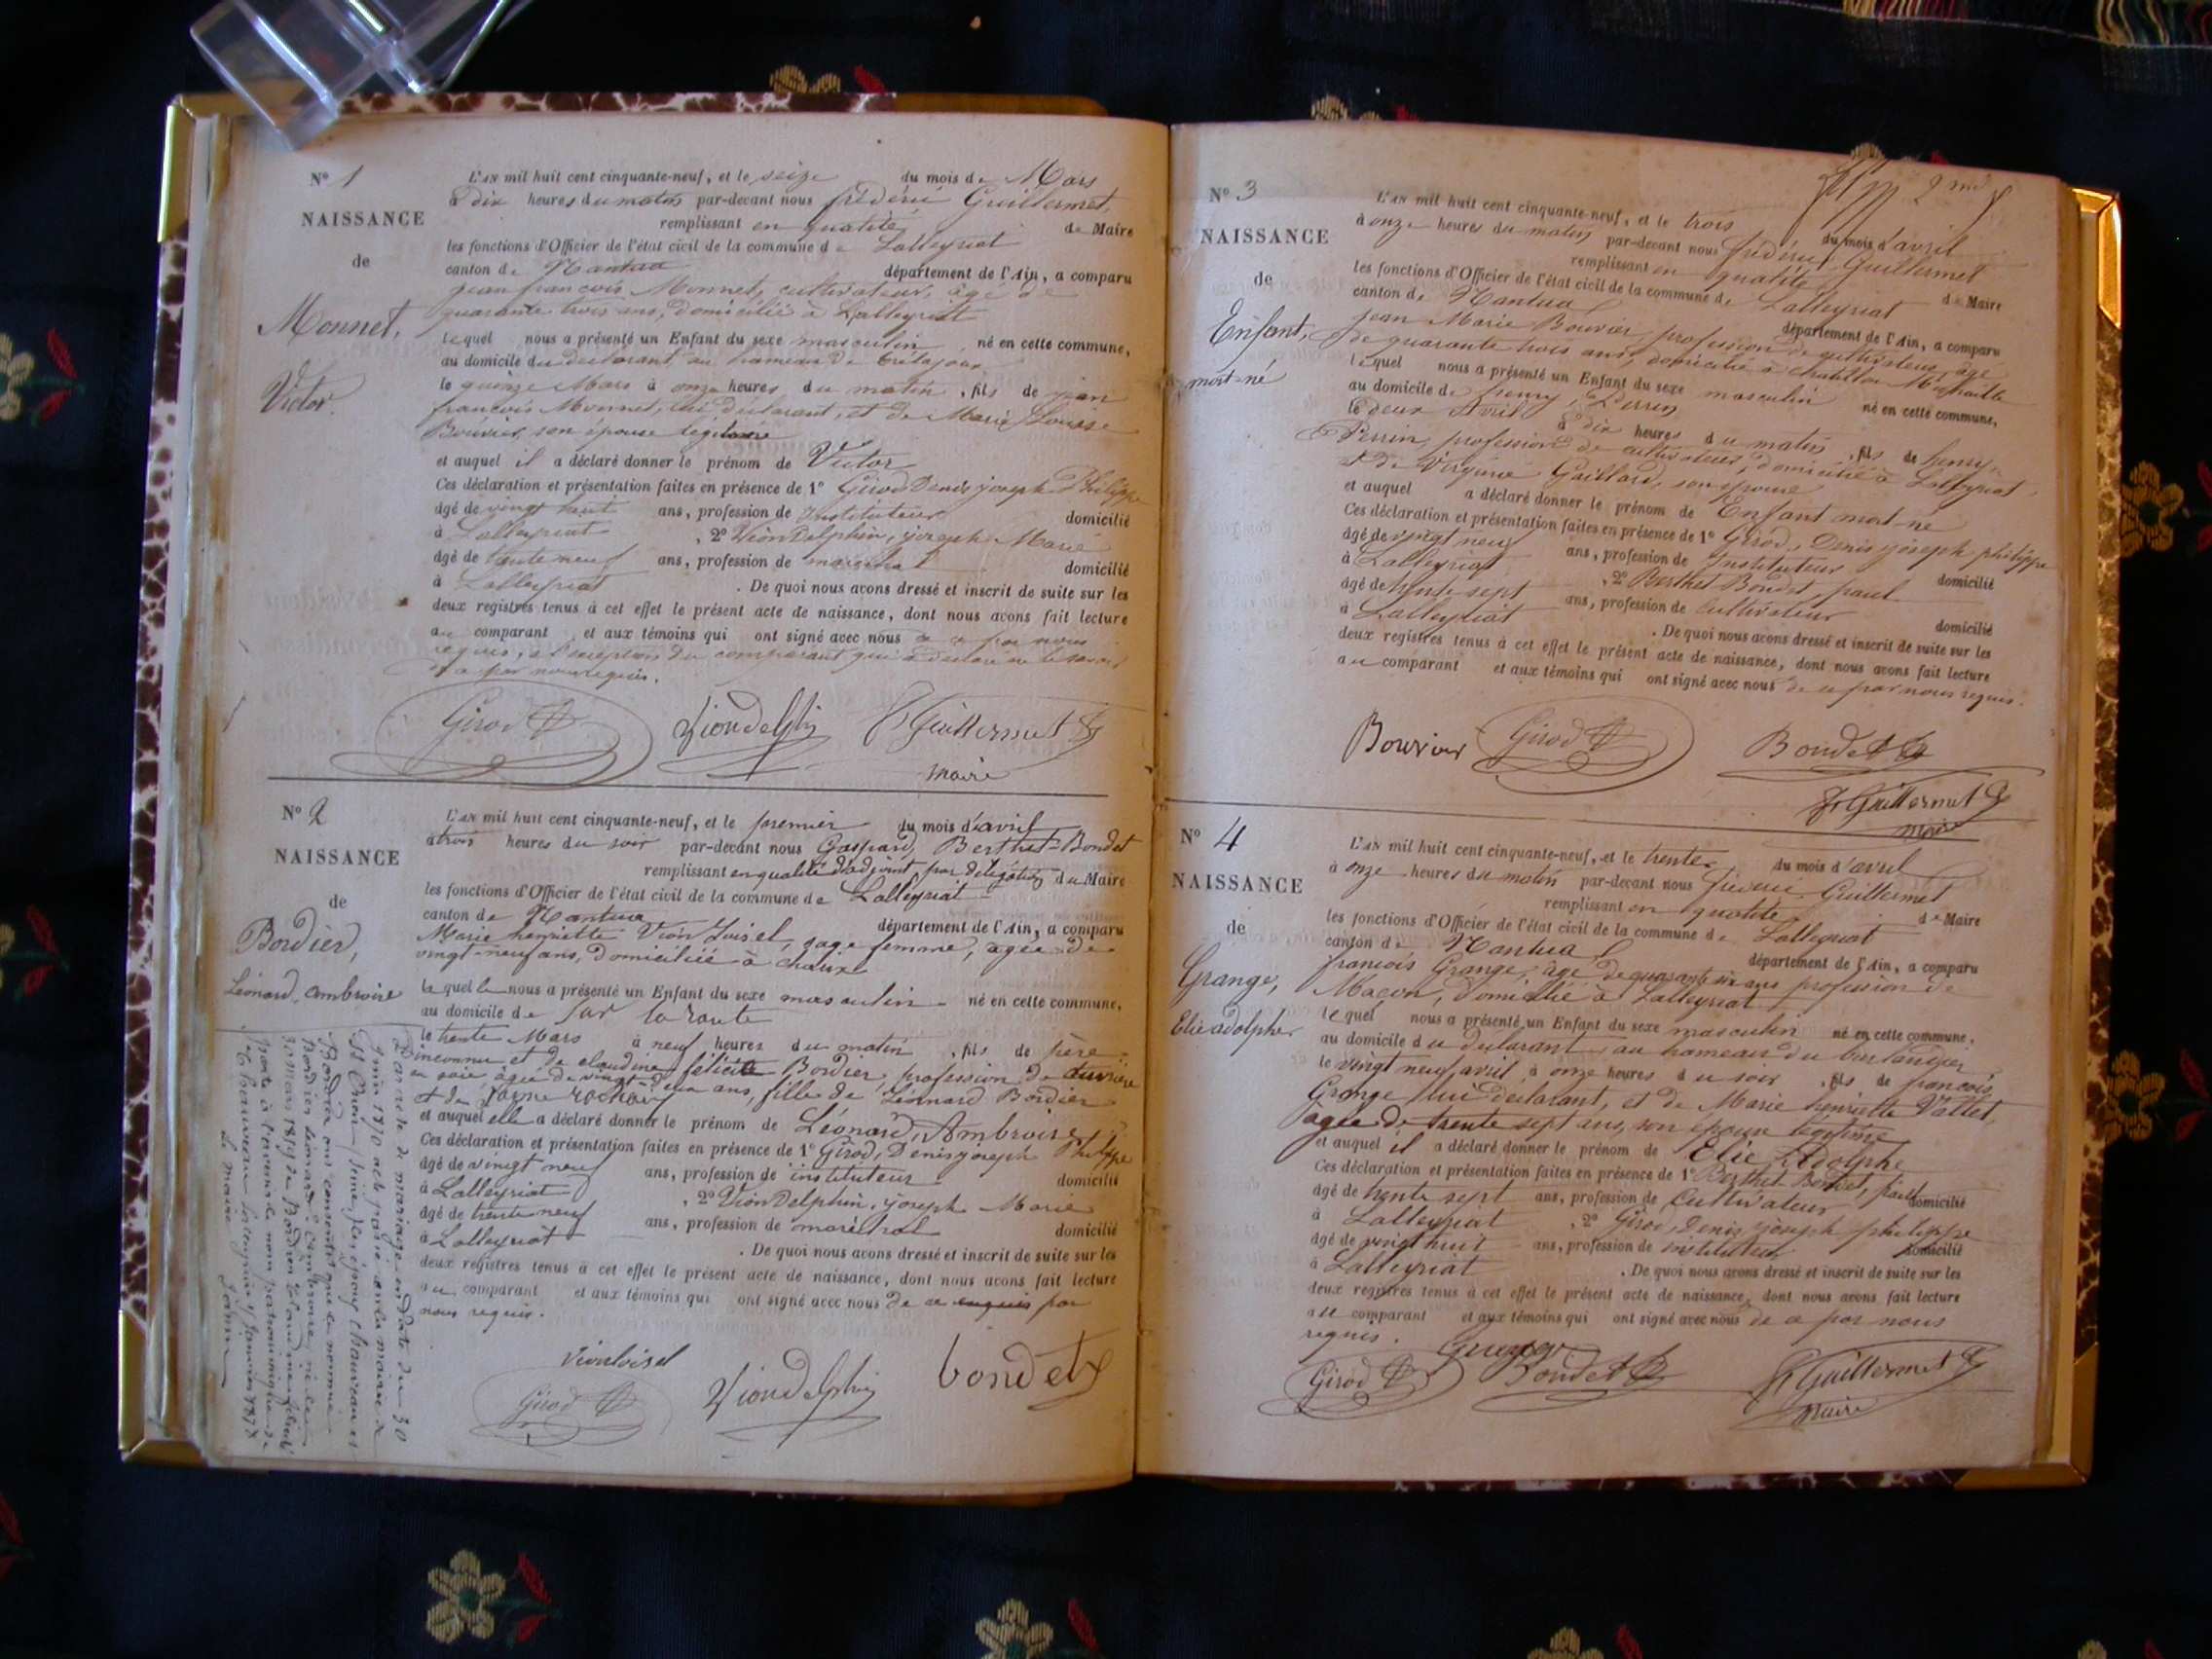 N° 1
NAISSANCE
de
Monnet,
Victor.
L'AN mil huit cent cinquante-neuf, et le seize du mois de Mars
à dix heures du matin par-devant nous frédéric Guillermet,
remplissant en qualité de Maire
les fonctions d'Officier de l'état civil de la commune de Lalleyriat
canton de Nantua département de l'Ain, a comparu
jean francois Monnet, cultivateur, âgé de
quarante trois ans, domicilié à Lalleyriat
lequel nous a présenté un Enfant du sexe masculin né en cette commune,
au domicile du déclarant, au hameau de
le quinze Mars à onze heures du matin, fils de jean
francois Monnet, lui déclarant, et de Marie Louise
Bouvier, son épouse legitime
et auquel il a déclaré donner le prénom de Victor
Ces déclaration et présentation faites en présence de 1° Girod Denis joseph Philippe
âgé de vingt huit ans, profession de Instituteur domicilié
à Lalleyriat , 2° Vion Delphin, joseph Marie
âgé de trente neuf ans, profession de maréchal domicilié
à Lalleyriat . De quoi nous avons dressé et inscrit de suite sur les
deux registres tenus à cet effet le présent acte de naissance, dont nous avons fait lecture
au comparant et aux témoins qui ont signé avec nous de ce par nous
requis, à l'exception du comparant qui a déclaré ne le savoir
de ce par nous requis.
Girod Viondelphin Fr Guillermet
maire
N° 2
NAISSANCE
de
Bordier,
Léonard, ambroise
L'AN mil huit cent cinquante-neuf, et le premier du mois d'avril
à trois heures du soir par-devant nous Gaspard, Berthet-Bondet
remplissant en qualité d'adjoint par délégation du Maire
les fonctions d'Officier de l'état civil de la commune de Lalleyriat
canton de Nantua département de l'Ain, a comparu
Marie henriette Vion Loisel, sage femme, agée de
vingt-neuf ans, domiciliée à
laquelle nous a présenté un Enfant du sexe masculin né en cette commune,
au domicile de sur la route
le trente Mars à neuf heures du matin, fils de père
inconnu et de claudine félicité Bordier, profession de ouvrière
en soie, âgée de vingt-deux ans, fille de Léonard Bordier
et de
et auquel elle a déclaré donner le prénom de Léonard, Ambroise
Ces déclaration et présentation faites en présence de 1° Girod, Denis joseph Philippe
âgé de vingt neuf ans, profession de instituteur domicilié
à Lalleyriat , 2° Vion Delphin, joseph Marie
âgé de trente neuf ans, profession de maréchal domicilié
à Lalleyriat . De quoi nous avons dressé et inscrit de suite sur les
deux registres tenus à cet effet le présent acte de naissance, dont nous avons fait lecture
au comparant et aux témoins qui ont signé avec nous de ce requis par
nous requis.
vionloisel
Girod Viondelphin bondet
Par acte de mariage en date du 30
juin 1890 acte passé en la mairie de
époux chauveau et
Bordier ont consenti que le nommé
Bordier Léonard Ambroise, né le
30 mars 1859, de Bordier Claudine félicité
porte à l'avenir le nom patronymique de
Chauveau
Le maire
N° 3
NAISSANCE
de
Enfant,
mort-né
2me
L'AN mil huit cent cinquante-neuf, et le trois du mois d'avril
à onze heures du matin par-devant nous frédéric Guillermet
remplissant en qualité de Maire
les fonctions d'Officier de l'état civil de la commune de Lalleyriat
canton de Nantua département de l'Ain, a comparu
jean Marie Bouvier, profession de cultivateur, agé
de quarante trois ans, domicilié à chatillon Michaille
lequel nous a présenté un Enfant du sexe masculin né en cette commune,
au domicile de henry, Perrin
le deux Avril à dix heures du matin, fils de henry,
Perrin, profession de cultivateur, domicilié à Lalleyriat,
et de Virginie Gaillard, son épouse
et auquel a déclaré donner le prénom de Enfant mort-né
Ces déclaration et présentation faites en présence de 1° Girod, Denis joseph philippe
âgé de vingt neuf ans, profession de Instituteur domicilié
à Lalleyriat , 2° Berthet Bondet, paul
âgé de trente sept ans, profession de cultivateur domicilié
à Lalleyriat . De quoi nous avons dressé et inscrit de suite sur les
deux registres tenus à cet effet le présent acte de naissance, dont nous avons fait lecture
au comparant et aux témoins qui ont signé avec nous de ce par nous requis.
Bouvier Girod Bondet
Fr Guillermet
maire
N° 4
NAISSANCE
de
Grange,
Elie adolphe
L'AN mil huit cent cinquante-neuf, et le trente du mois d'avril
à onze heures du matin par-devant nous fréderic Guillermet
remplissant en qualité de Maire
les fonctions d'Officier de l'état civil de la commune de Lalleyriat
canton de Nantua département de l'Ain, a comparu
francois Grange, âgé de quarante six ans profession de
Maçon, domicilié à Lalleyriat
lequel nous a présenté un Enfant du sexe masculin né en cette commune,
au domicile du déclarant, au hameau du
le vingt neuf avril à onze heures du soir, fils de francois
Grange lui déclarant, et de Marie henriette Vallet,
agée de trente sept ans, son épouse legitime
et auquel il a déclaré donner le prénom de Elie Adolphe
Ces déclaration et présentation faites en présence de 1° Berthet Bondet, paul
âgé de trente sept ans, profession de Cultivateur domicilié
à Lalleyriat , 2° Girod, Denis joseph philippe
âgé de vingt huit ans, profession de instituteur domicilié
à Lalleyriat . De quoi nous avons dressé et inscrit de suite sur les
deux registres tenus à cet effet le présent acte de naissance, dont nous avons fait lecture
au comparant et aux témoins qui ont signé avec nous de ce par nous
requis.
Girod Bondet Fr Guillermet
maire